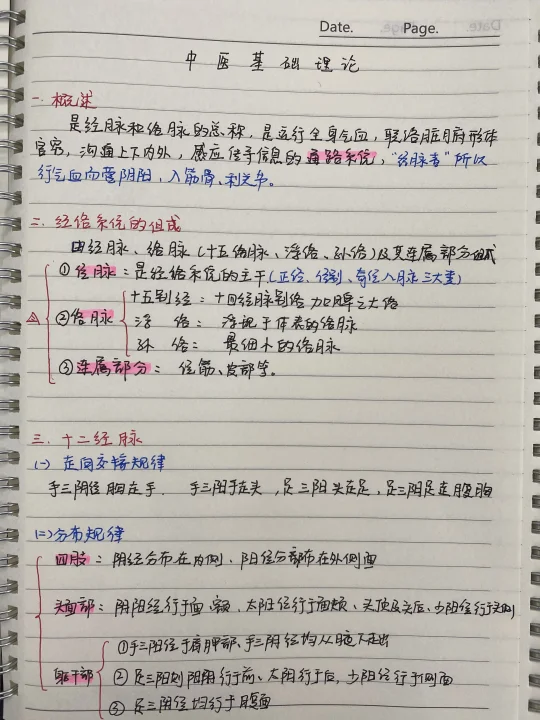 Date. Page.
中医基础理论
一.概述
是经脉和络脉的总称,是运行全身气血,联络脏腑形体
官窍,沟通上下内外,感应传导信息的通路系统,"经脉者"所以
行气血而营阴阳,入筋骨、利关节。
二.经络系统的组成
由经脉、络脉(十五络脉、浮络、孙络)及其连属部分组成
①经脉:是经络系统的主干(正经、经别、奇经八脉三大类)
十五别经:十四经脉别络加脾之大络
②络脉 浮络:浮现于体表的络脉
孙络:最细小的络脉
③连属部分:经筋、皮部等。
三.十二经脉
(一)走向交接规律
手三阴经胸走手.手三阳手走头,足三阳头走足,足三阴足走腹胸
(二)分布规律
四肢:阴经分布在内侧.阳经分部布在外侧面
头面部:阳阴经行于面.额,太阳经行于面颊、头顶及头后、少阳经行于头侧
①手三阳经于肩胛部、手三阴经均从腋下走出
躯干部 ②足三阳则阳明行于前、太阳行于后,少阳经行于侧面
③足三阴经均行于腹面